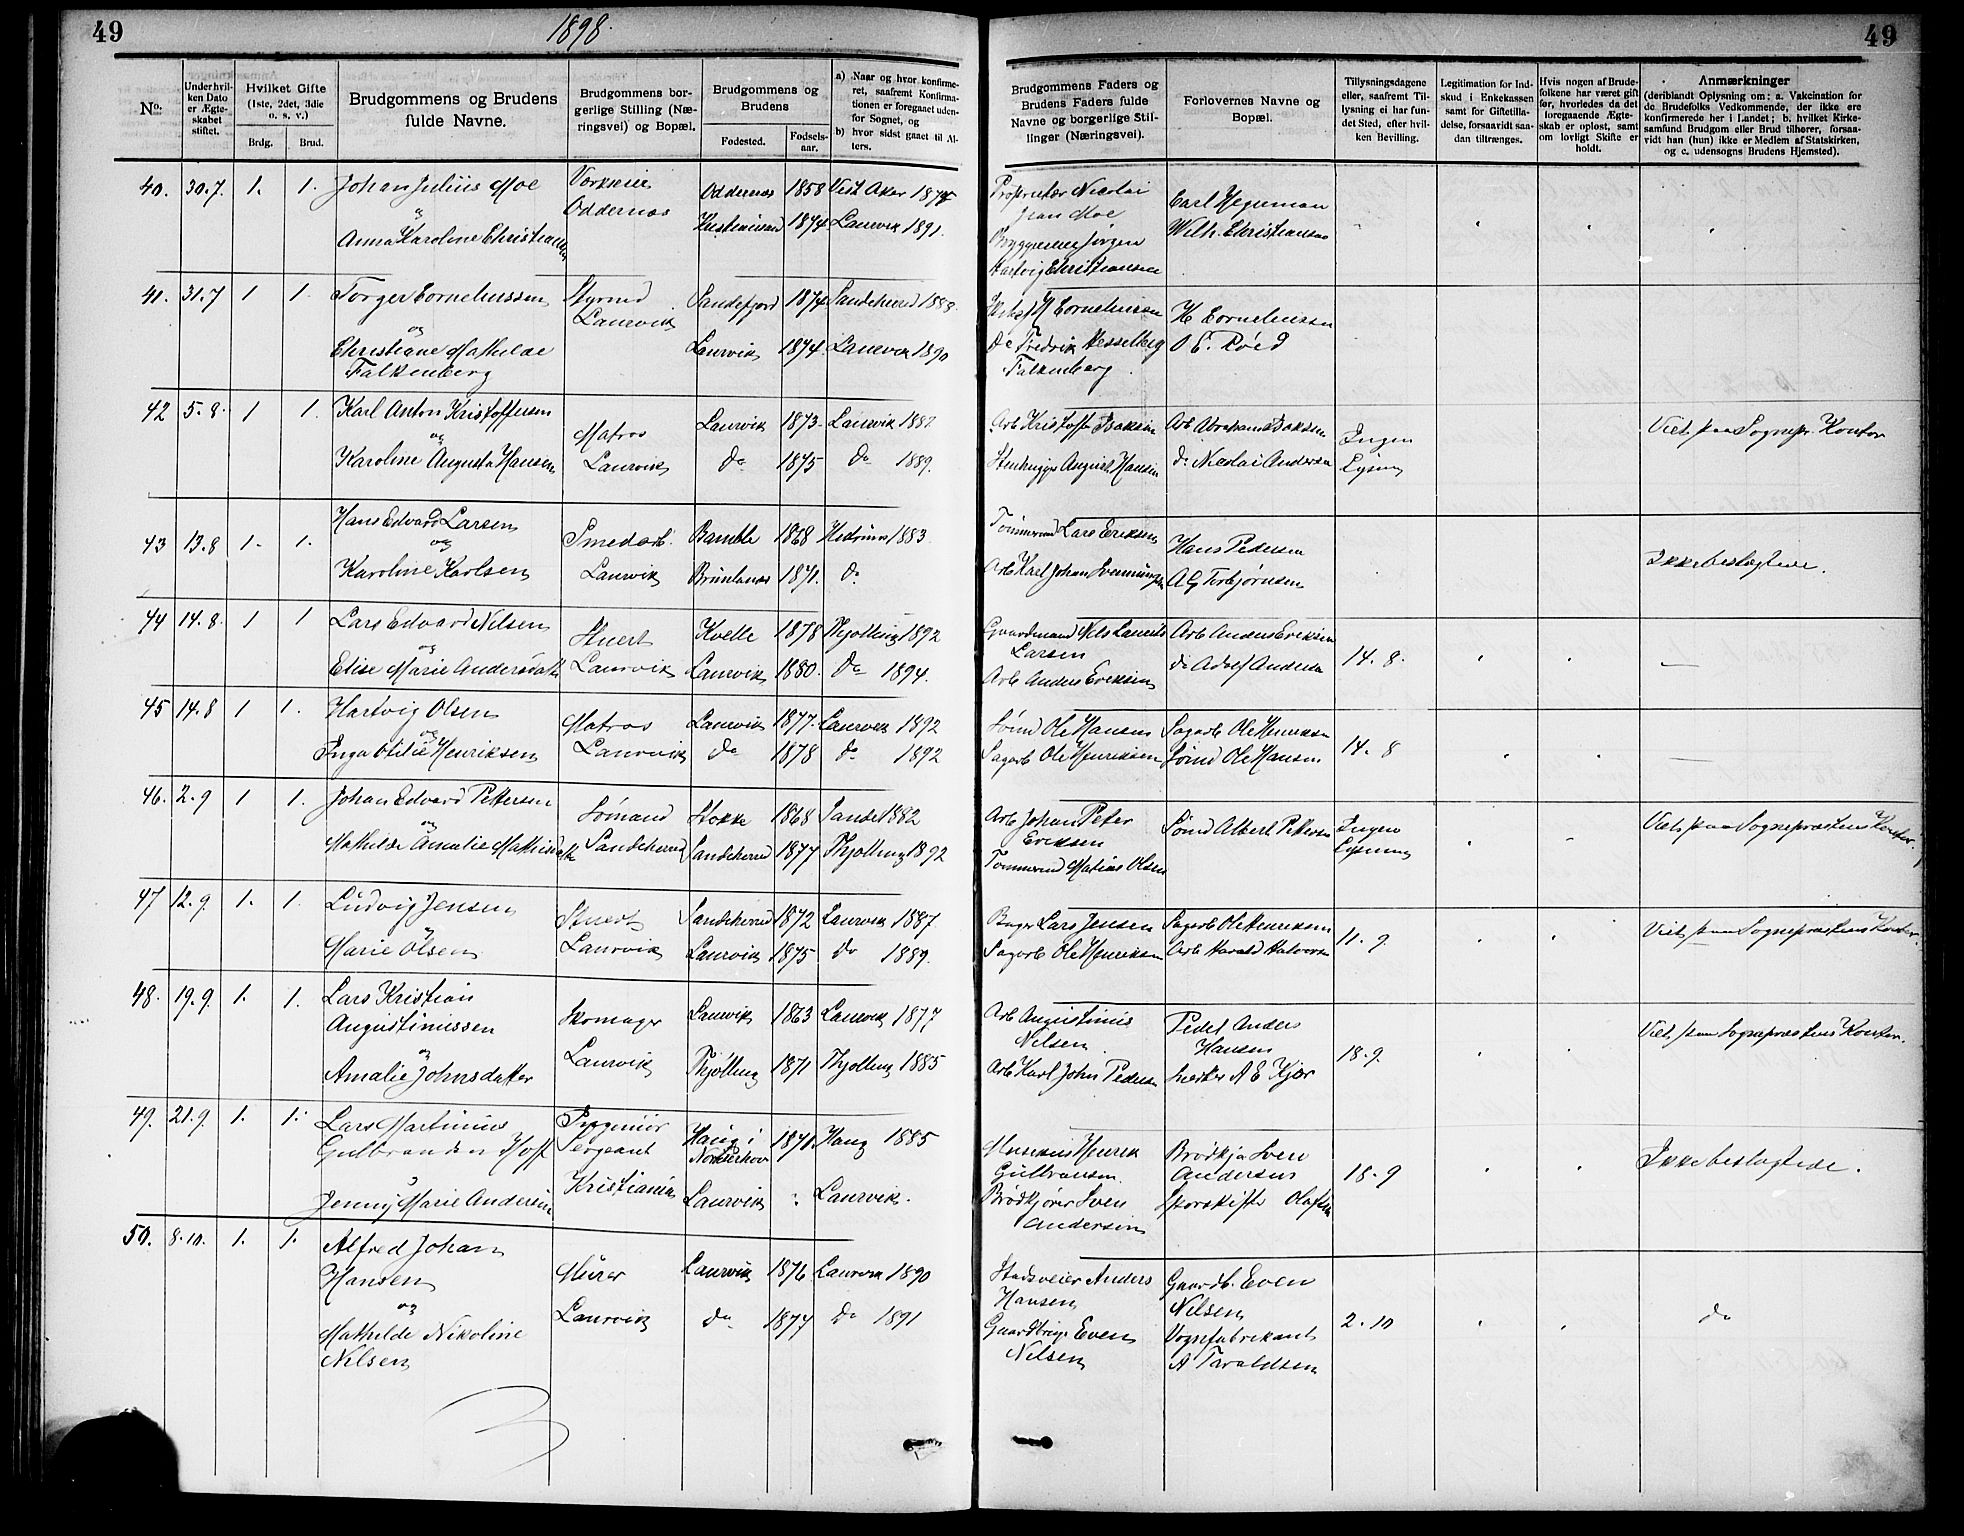 49
1898.
49
No.
Under hvilken Dato er Ægteskabet stiftet.
Hvilket Gifte (1ste, 2det, 3die o. s. v.)
Brdg.
Brud.
Brudgommens og Brudens fulde Navne.
Brudgommens borgerlige Stilling (Næringsvei) og Bopæl.
Brudgommens og Brudens
Fødested.
Fødselsaar.
a) Naar og hvor konfirmeret, saafremt Konfirmationen er foregaaet udenfor Sognet, og
b) hvor sidst gaaet til Alters.
Brudgommens Faders og Brudens Faders fulde Navne og borgerlige Stillinger (Næringsvei).
Forlovernes Navne og Bopæl.
Tillysningsdagene eller, saafremt Tillysning ei har fundet Sted, efter hvilken Bevilling.
Legitimation for Indskud i Enkekassen samt for Giftetilladelse, forsaavidt saadan tiltrænges.
Hvis nogen af Brudefolkene har været gift før, hvorledes da det foregaaende Ægteskab er opløst, samt om lovligt Skifte er holdt.
Anmærkninger
(deriblandt Oplysning om: a. Vakcination for de Brudefolks Vedkommende, der ikke ere konfirmerede her i Landet; b. hvilket Kirkesamfund Brudgom eller Brud tilhører, forsaavidt han (hun) ikke er Medlem af Statskirken, og c. udensogns Brudens Hjemsted).
40. 30.7. 1. 1. Johan Julius Moe
Oddernes 1858 Vest Aker 1874
Oddernæs
Anna Karoline Christiansen
1874 Laurvik 1891.
Proprietær Nicolai
Jean Moe
Jørgen
Hartvig Christiansen
Carl Hegerman
Wilh. Christiansen
41. 31.7 1 1. Torger Corneliussen
og
Christiane Mathilde
Falkenberg
Styrmd
Laurvik
Sandefjord 1874 Sandeherred 1888.
Laurvik 1874. Laurvik 1890
Corneliussen
Do Fredrik Hesselberg
Falkenberg.
H Corneliussen
O C. Røed
42 5.8. 1 1. Karl Anton Kristoffersen
og
Karoline Augusta Hansen
Matros
Laurvik
Laurvik 1873. Laurvik 1887
do 1875 do 1889.
Arb Kristoffer Isaksen
Stenhugger August Hansen
Arb Abraham Isaksen
do Nicolai Andersen
Ingen
Lysning
Viet paa Sognepr. Kontor
43 13.8 1. 1. Hans Edvard Larsen
og
Karoline Karlsen
Smedarb.
Laurvik
Bamble 1868 Hedrum 1883.
Brunlanæs 1871. do
Tømmermd Lars Eriksen
Arb Karl Johan Svenningsen
Hans Pedersen
A G Torbjørnsen
Ikke beslægtede.
44 14.8. 1 1 Lars Edvard Nilsen
og
Elise Marie Andersdatt
Stuert
Laurvik
Kvelle 1878 Thjølling 1892
Laurvik 1880. do 1894.
Gaardmand Nils Laurits
Larsen
Arb Anders Eriksen
Arb Anders Eriksen
do Adolf Andersen
14. 8.
45 14.8 1 1. Hartvig Olsen
og
Inga Otilie Henriksen
Matros
Laurvik
Laurvik 1877. Laurvik 1892
do 1878 do 1892
Sømd Ole Hansen
Sagarb Ole Henriksen
Sagarb Ole Henriksen
Sømd Ole Hansen
14. 8
46. 2.9 1 1. Johan Edvard Pettersen
og
Mathilde Amalie Mathisdatter
Sømand
Sandeherred
Stokke 1868 Sandeh 1882
Sandeherred 1877 Thjølling 1892
Arb Johan Peter
Eriksen
Tømmermd Matias Olsen
Sømd Albert Pettersen
Ingen
Lysning
Viet paa Sognepræstens Kontor.
47 12.9. 1. 1. Ludvig Jensen
og
Marie Olsen
Stuert
Laurvik
Sandeherred 1872 Laurvik 1887.
Laurvik 1875 do 1889.
Bager Lars Jensen
Sagarb Ole Henriksen
Sagarb Ole Henriksen
Arb Harald Halvorsen
11. 9.
Viet paa Sognepræstens Kontor.
48. 19.9. 1. 1. Lars Kristian
Augustinussen
og
Amalie Johnsdatter
Skomager
Laurvik
Laurvik 1863 Laurvik 1877
Thjølling 1871 Thjølling 1885
Arb Augustinus
Nilsen
Arb Karl John Pedersen
Pedel Anders
Hansen
Snedker A E Kjær
18.9.
Viet paa Sognepræstens Kontor.
49. 21.9. 1. 1. Lars Martinius
Gulbrandsen Hoff
Jenny Marie Andersen
Ingeniør
Sergeant
Kristiania
Haug i
Norderhov
1870. Haug 1885
Laurvik Laurvik.
Henrik
Gulbransen.
Brødkjører Sven
Andersen
Brødkjø Sven
Andersen
Olafsen
18.9
Ikke beslægtede.
50. 8.10. 1. 1. Alfred Johan
Hansen
og
Mathilde Nikoline
Nilsen
Murer
Laurvik
Laurvik 1876 Laurvik 1890
do 1877 do 1891
Anders
Hansen
Gaardbrug Even
Nilsen
Gaardb. Even
Nilsen
Vognfabrikant
A Taraldsen
2.10
do